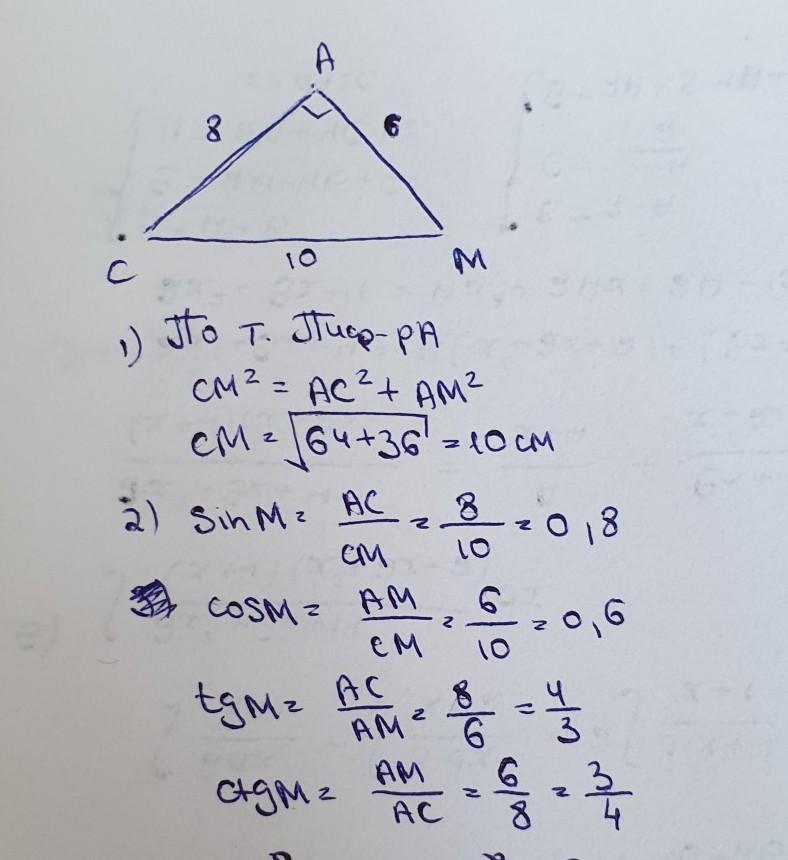 A
8 6
C 10 M
1) По т. Пиф-рА
CM² = AC² + AM²
CM = √64+36 = 10 см
2) sinM = AC/CM = 8/10 = 0,8
cosM = AM/CM = 6/10 = 0,6
tgM = AC/AM = 8/6 = 4/3
ctgM = AM/AC = 6/8 = 3/4